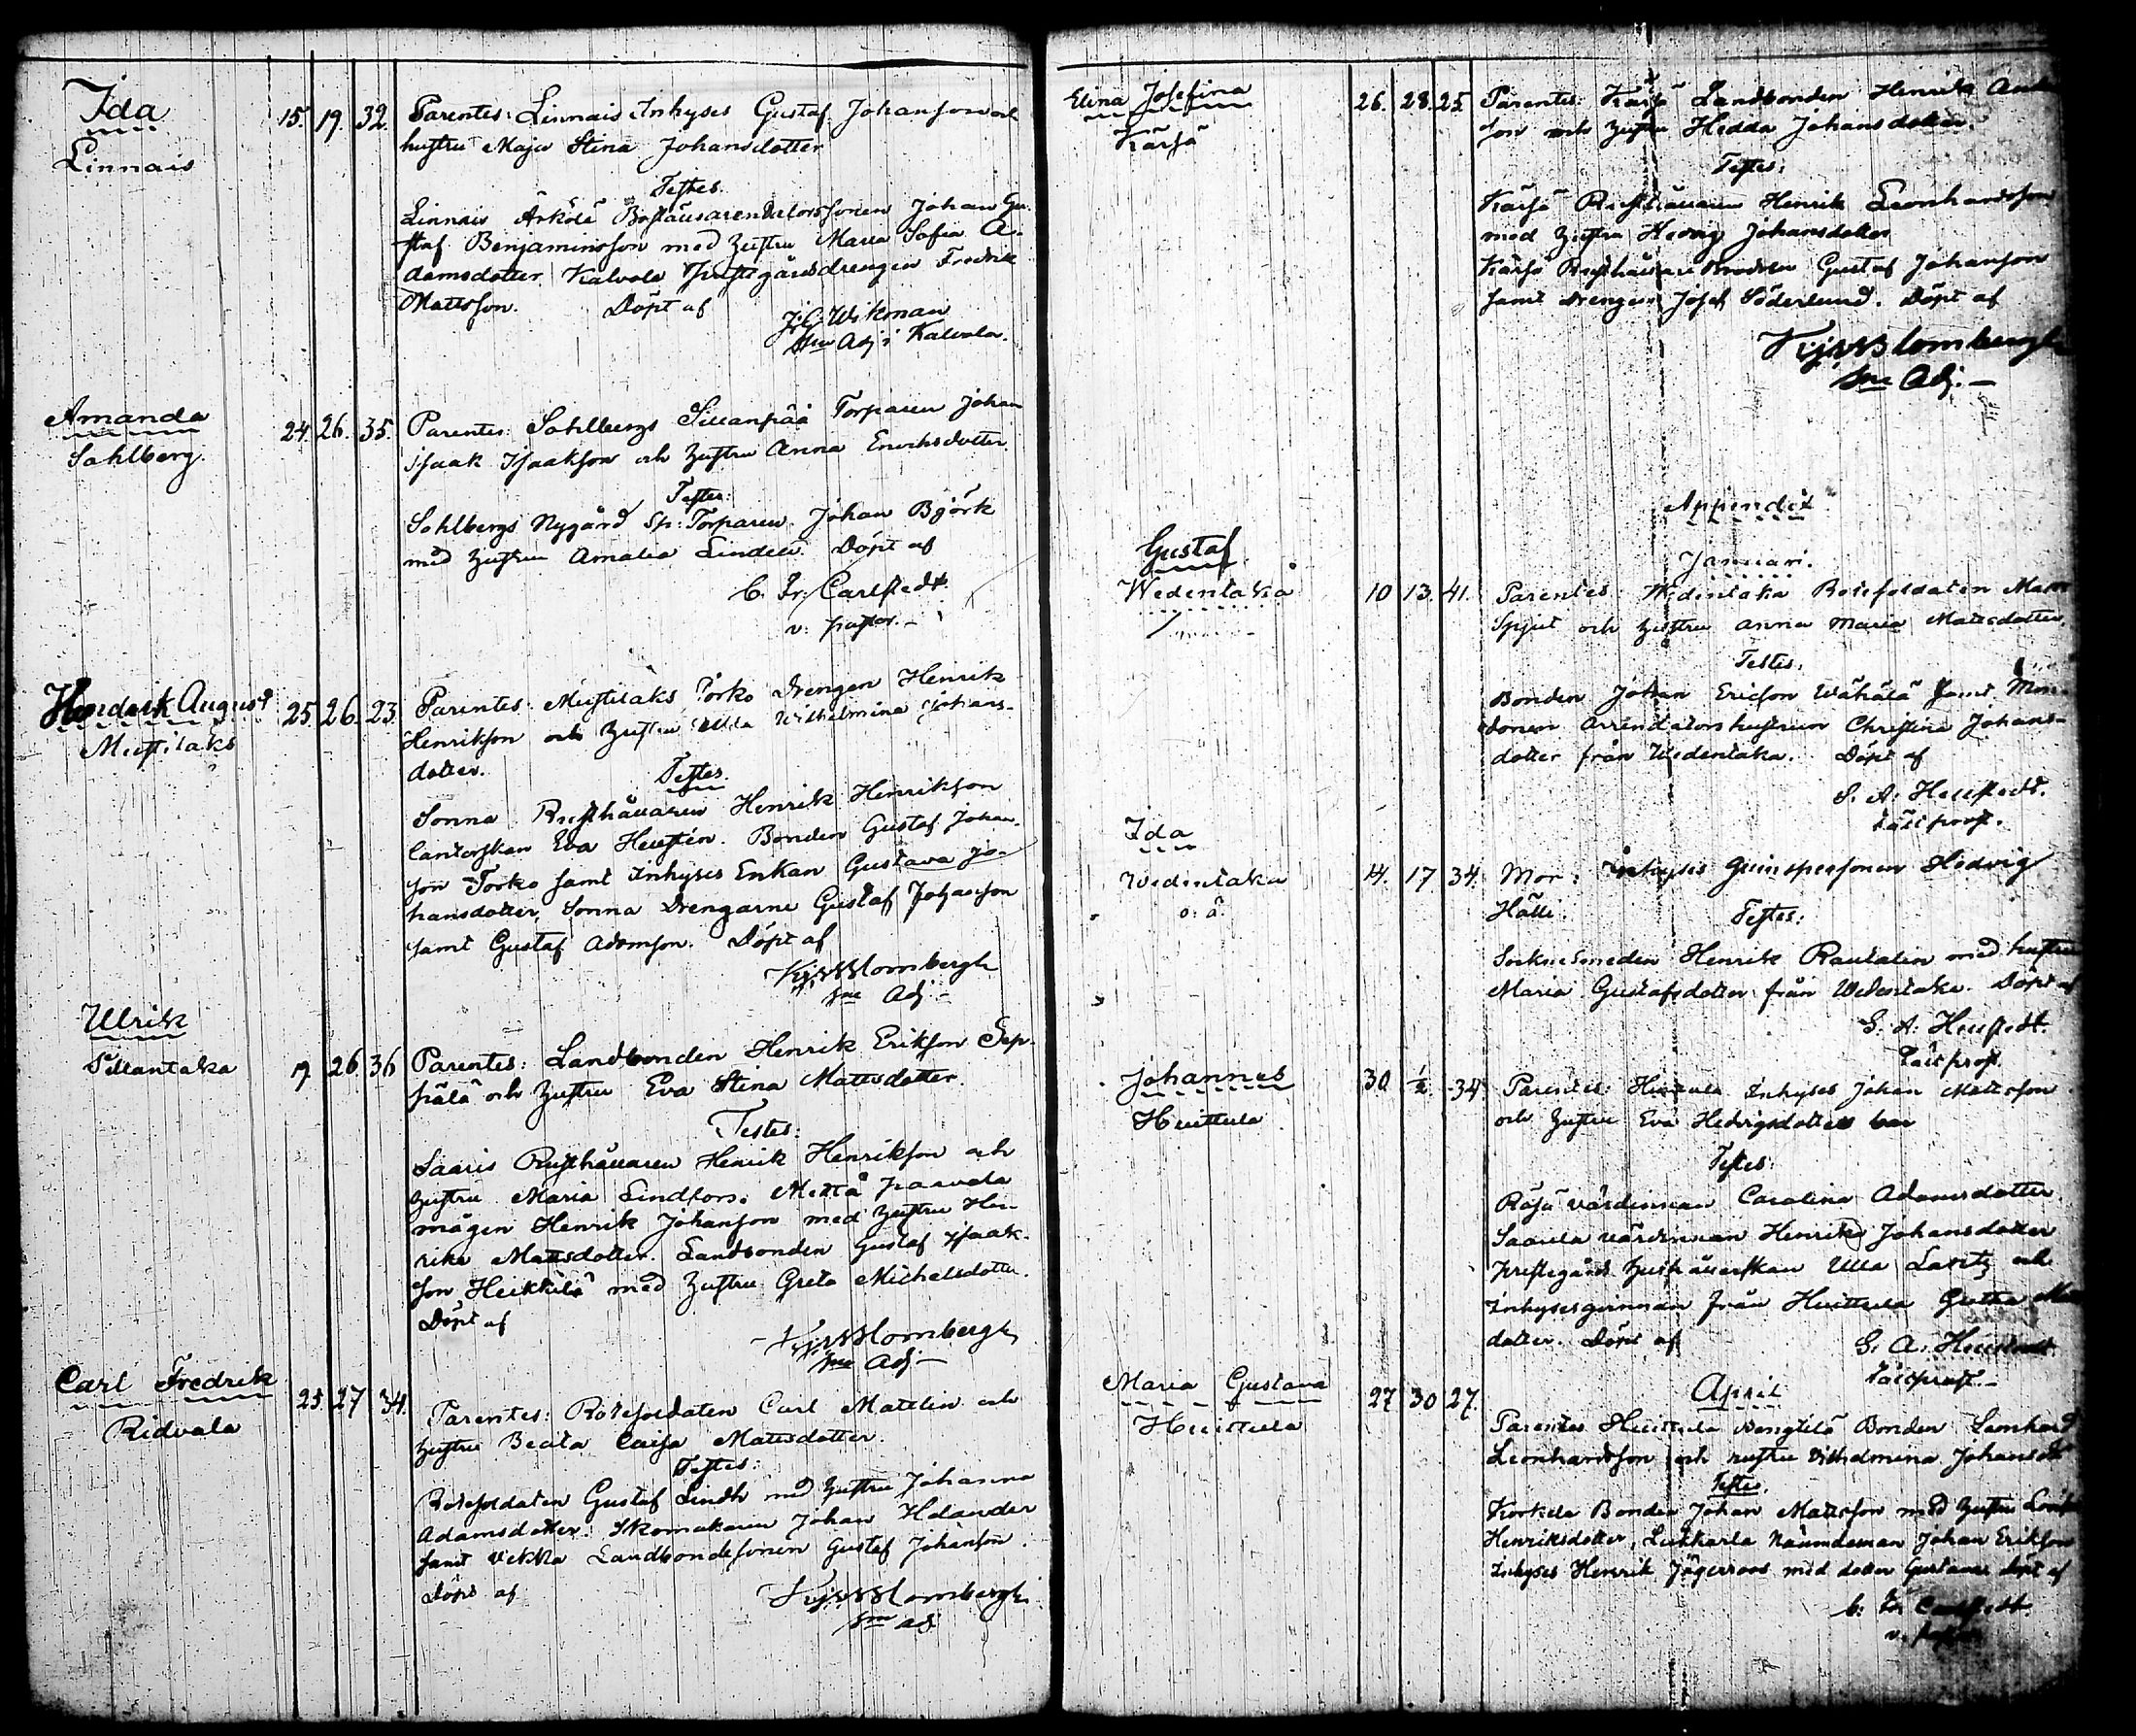 Ida
Linnais
15. 19. 32.
Parentes: Linnais Inhyses Gustaf Johansson och
hustru Maja Stina Johansdotter
Testes.
Linnais Arkölä Johan Gu-
staf Benjaminsson med hustru Maria Sofia A-
damsdotter Kalvola Prestgårdsdrengen Fredrik
Mattsson. Döpt af
J. G. Wikman
Sne Adj i Kalvola.
Amanda
Sahlberg.
24. 26. 35.
Parentes: Sahlbergs Sillanpää Torparen Johan
Isaak Isaaksson och hustru Anna Erichsdotter.
Testes:
Sahlbergs Nygård Sp: Torparen Johan Björk
med hustru Amalia Lindell. Döpt af
C. Fr: Carlstedt
v: pastor.
Henderik August
Mustilaks
25. 26. 23.
Parentes: Mustilaks Torko Drengen Henrik
Henriksson och hustru Ulla Wilhelmina Johans-
dotter.
Testes.
Sonna Rusthållaren Henrik Henriksson
Cantorskan Eva Heusten. Bonden Gustaf Johan-
son Torko samt Inhyses Enkan Gustava Jo-
hansdotter, Sonna Drengarne Gustaf Johansson
samt Gustaf Adamsson. Döpt af
Blombergh
sne Adj.
Ulrik
Sillantaka
17 26 36
Parentes: Landbonden Henrik Eriksson Sep-
pälä och hustru Eva Stina Mattsdotter.
Testes:
Saaris Rusthållaren Henrik Henriksson och
hustru Maria Lindfors. Mettä paavola
mågen Henrik Johansson med hustru Hen-
rika Mattsdotter. Landbonden Gustaf Isaak-
son Heikkilä med hustru Greta Michelsdotter.
Döpt af
Blombergh
sne Adj
Carl Fredrik
Ridvala
25. 27 34.
Parentes: Rotesoldaten Carl Mattlin och
hustru Beata Caisa Mattsdotter.
Testes:
Rotesoldaten Gustaf Lindh med hustru Johanna
Adamsdotter. Skomakaren Johan Helander
samt Vekka Landbondesonen Gustaf Johansson.
Döpt af
Blombergh
sne adj
Elina Josefina
Kärsä
26. 28. 25.
Parentes: Kärsä Landbonden Henrik
son och hustru Hedda Johansdotter.
Testes:
Kärsä Rusthållaren Henrik Leonhardsson
med hustru Hedvig Johansdotter
Kärsä Rusthållare Brodren Gustaf Johansson
samt drengen Josef Söderlund. Döpt af
Blombergh
sne Adj.
Appendix
Januari.
Gustaf
Wedentaka
10 13. 41.
Parentes: Wedentaka Rotesoldaten
Spjut och hustru Anna Maria Mattsdotter.
Testes.
Bonden Johan Ericsson Wähälä samt
Arrendatorshustrun Christina Johans-
dotter från Wedentaka. Döpt af
S. A. Heustedt.
Ida
Wedentaka
o. ä.
14. 17 34.
Mor: Inhyses Qvinspersonen Hedvig
Hälli.
Testes:
Sockne Smeden Henrik Rautalin med hustru
Maria Gustafsdotter från Wedentaka. Döpt af
S. A. Heustedt.
Johannes
Huittula
30. 1/2 34
Parentes: Huittula Inhyses Johan Mattsson
och hustru Eva Hedvigsdotter
Testes:
Röjä värdinnan Carolina Adamsdotter
Saarela värdinnan Henrika Johansdotter
prestegårds hushållerskan Ulla Lavitz och
Inhysesqvinnan från Huittula Gretha
dotter. Döpt af
S. A. Heustedt
April
Maria Gustava
Huittula
27 30 27.
Parentes Huittula Bengtilä Bonden Leonhard
Leonhardsson och hustru Vilhelmina
Testes.
Korkela Bonden Johan Mattsson med hustru
Henriksdotter, Nämndeman Johan Eriksson
Inhyses Henrik Jägerroos med dotter Gustava döpt af
C. Fr. Carlstedt
v. pastor